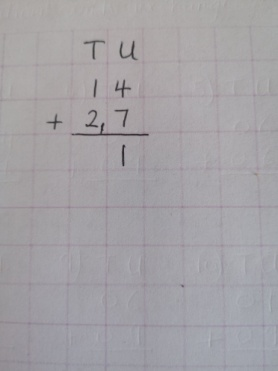 T U
1 4
+ 2, 7
1